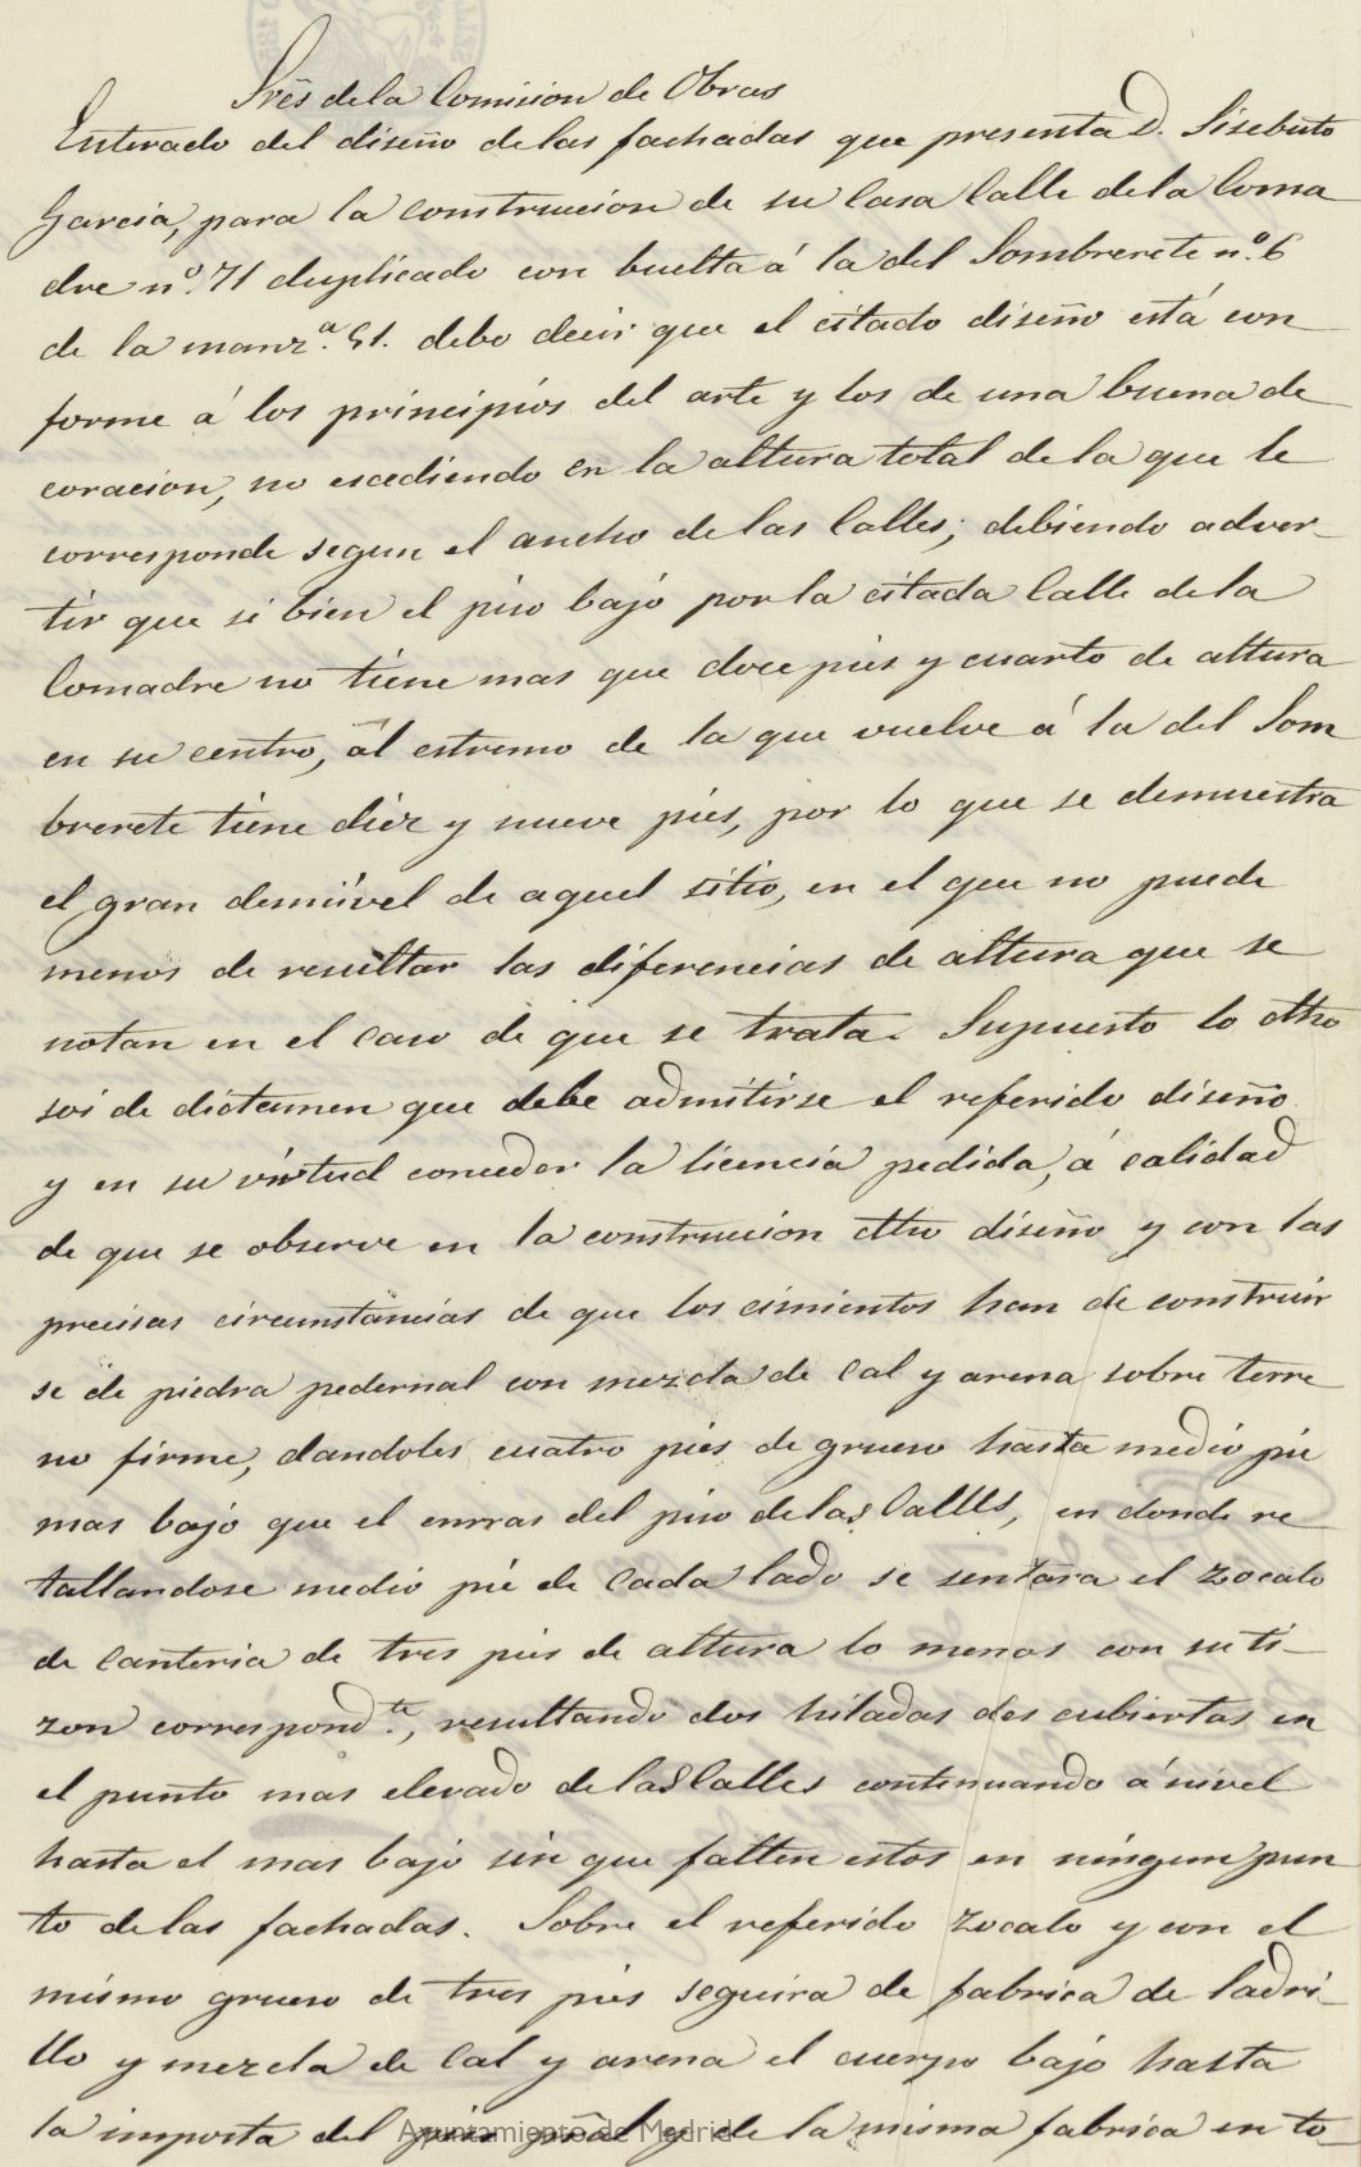 Sres de la Comision de Obras
Enterado del diseño de las fachadas que presenta D. Sisebuto
Garcia, para la construccion de su Casa Calle de la Coma
dre nº. 71 duplicado con buelta á la del Sombrerete nº. 6
de la manzª. 51. debo decir que el citado diseño está con
forme á los principios del arte y los de una buena de
coracion, no escediendo en la altura total de la que le
corresponde segun el ancho de las Calles; debiendo adver-
tir que si bien el piso bajo por la citada Calle de la
Comadre no tiene mas que doce pies y cuarto de altura
en su centro, al estremo de la que vuelve á la del Som
brerete tiene diez y nueve pies, por lo que se demuestra
el gran desnivel de aquel sitio, en el que no puede
menos de resultar las diferencias de altura que se
notan en el caso de que se trata. Supuesto lo dho
soi de dictamen que debe admitirse el referido diseño
y en su virtud conceder la licencia pedida, á calidad
de que se observe en la construccion dho diseño y con las
precisas circunstancias de que los cimientos han de construir
se de piedra pedernal con mezcla de Cal y arena sobre terre
no firme, dandoles cuatro pies de grueso hasta medio pie
mas bajo que el enrras del piso de las Calles, en donde re
tallandose medio pie de cada lado se sentara el zocalo
de Canteria de tres pies de altura lo menos con su ti-
zon correspondte., resultando dos hiladas descubiertas en
el punto mas elevado de las Calles continuando á nivel
hasta el mas bajo sin que falten estos en ningun pun
to de las fachadas. Sobre el referido zocalo y con el
mismo grueso de tres pies seguira de fabrica de ladri-
llo y mezcla de Cal y arena el cuerpo bajo hasta
la imposta del piso pral y de la misma fabrica en to-
Ayuntamiento de Madrid